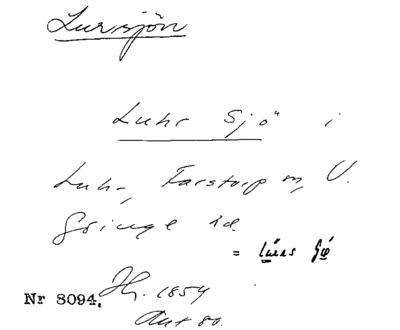 Lursjön
Luhr Sjö i
Luh-, Farstorp m, V.
Göinge hd.
= lúras Sjö
Nr 8094. Jh. 1854
Ant 80.